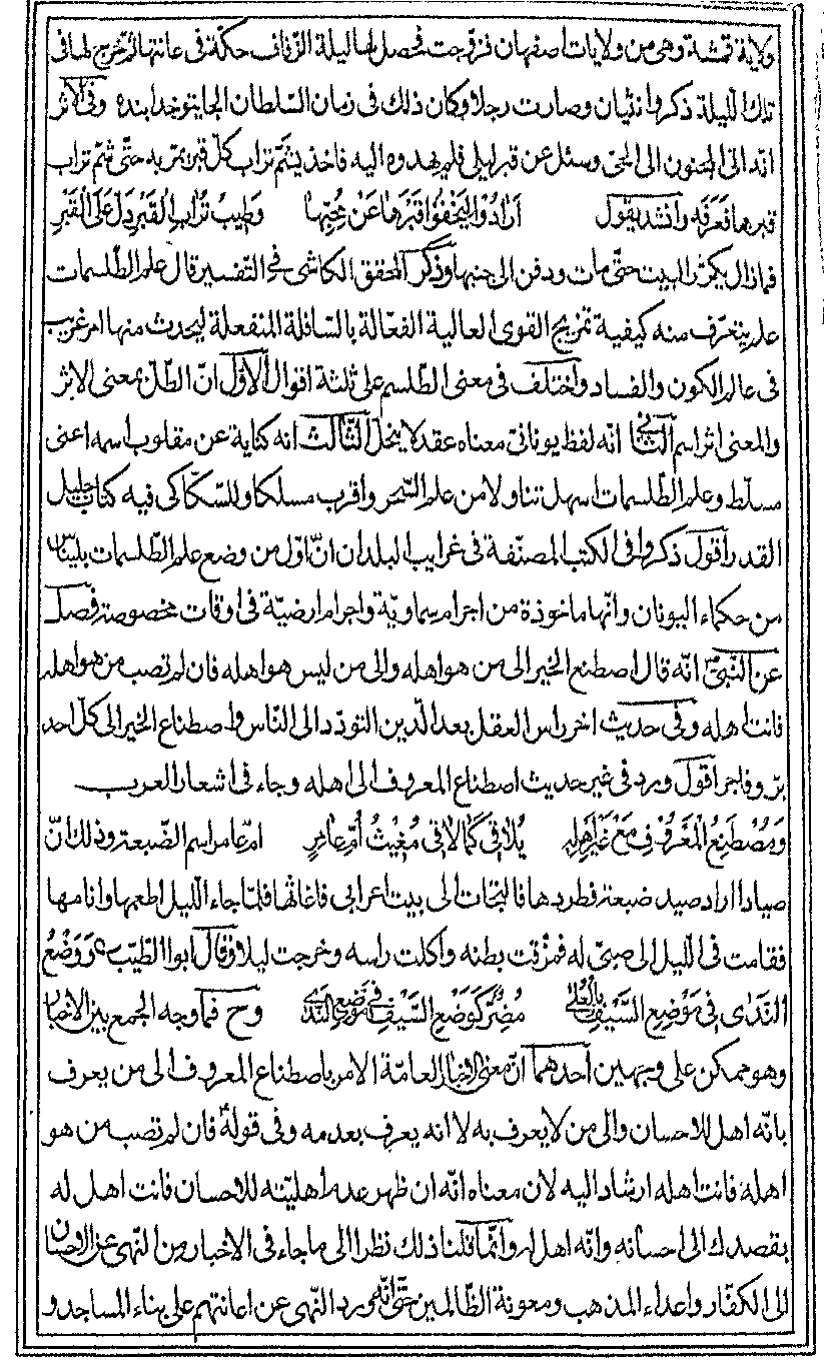 ولاية قمشة وهى من ولايات اصفهان فزوّجت فحصل لها ليلة الزّفاف حكّة فى عانتها ثم خرج لها فى
تلك اللّيلة ذكر وانثيان وصارت رجلا وكان ذلك فى زمان السّلطان الجايتو خدا بنده وفى الاثر
انه اتى المجنون الى الحىّ وسئل عن قبر ليلى فلم يهدوه اليه فاخذ يشمّ تراب كلّ قبر يمرّ به حتّى شمّ تراب
قبرها فعرفه وانشد يقول ارادوا ليخفوا قبرها عن محبّها وطيب تراب القبر دلّ على القبر
فمازال يكرّر البيت حتّى مات ودفن الى جنبها وذكر المحقق الكاشى فى التفسير قال علم الطّلسمات
علم يتعرّف منه كيفية تمزيج القوى العالية الفعّالة بالسّافلة المنفعلة ليحدث منها امر غريب
فى عالم الكون والفساد واختلف فى معنى الطّلسم على ثلثة اقوال الاوّل انّ الطّلّ بمعنى الاثر
والمعنى اثر اسم الثّانى انه لفظ يونانىّ معناه عقد لا ينحلّ الثّالث انه كناية عن مقلوب اسمه اعنى
مسلّط وعلم الطّلسمات اسهل تناولا من علم السّحر واقرب مسلكا وللسّكاكى فيه كتاب جليل
القدر اقول ذكروا فى الكتب المصنّفة فى غرايب البلدان انّ اوّل من وضع علم الطّلسمات بليناس
من حكماء اليونان وانّها ماخوذة من اجرام سماويّة واجرام ارضيّة فى اوقات مخصوصة فصل
عن النّبىّ ص انّه قال اصطنع الخير الى من هو اهله والى من ليس هو اهله فان لم تصب من هو اهله
فانت اهله وفى حديث اخر راس العقل بعد الّدين التودّد الى النّاس واصطناع الخير الى كلّ احد
برّ وفاجر اقول ورد فى غير حديث اصطناع المعروف الى اهله وجاء فى اشعار العرب
ومصطنع المعروف مع غير اهله يلاقى كما لاقى مغيث امّ عامر امّ عامر اسم الضّبعة وذلك انّ
صيادا اراد صيد ضبعة فطردها فالتجات الى بيت اعرابى فاغاثها فلمّا جاء اللّيل اطعمها وانامها
فقامت فى اللّيل الى صبىّ له فمزّقت بطنه واكلت راسه وخرجت ليلا وقال ابوا الطّيّب ووضع
النّدى فى موضع السّيف بالعلى مضرّ كوضع السّيف فى موضع النّدى وح فما وجه الجمع بين الاخبار
وهو ممكن على وجهين احدهما انّ معنى الاخبار العامّة الامر باصطناع المعروف الى من يعرف
بانّه اهل للاحسان والى من لا يعرف به لا انه يعرف بعدمه وفى قوله فان لم تصب من هو
اهله فانت اهله ارشاد اليه لان معناه انّه ان ظهر عدم اهليّته للاحسان فانت اهل له
بقصدك الى احسانه وانّه اهل له وانّما قلنا ذلك نظرا الى ما جاء فى الاخبار من النّهى عن الاحسان
الى الكفّار واعداء المذهب ومعونة الظّالمين حتّى انّه ورد النّهى عن اعانتهم على بناء المساجد و